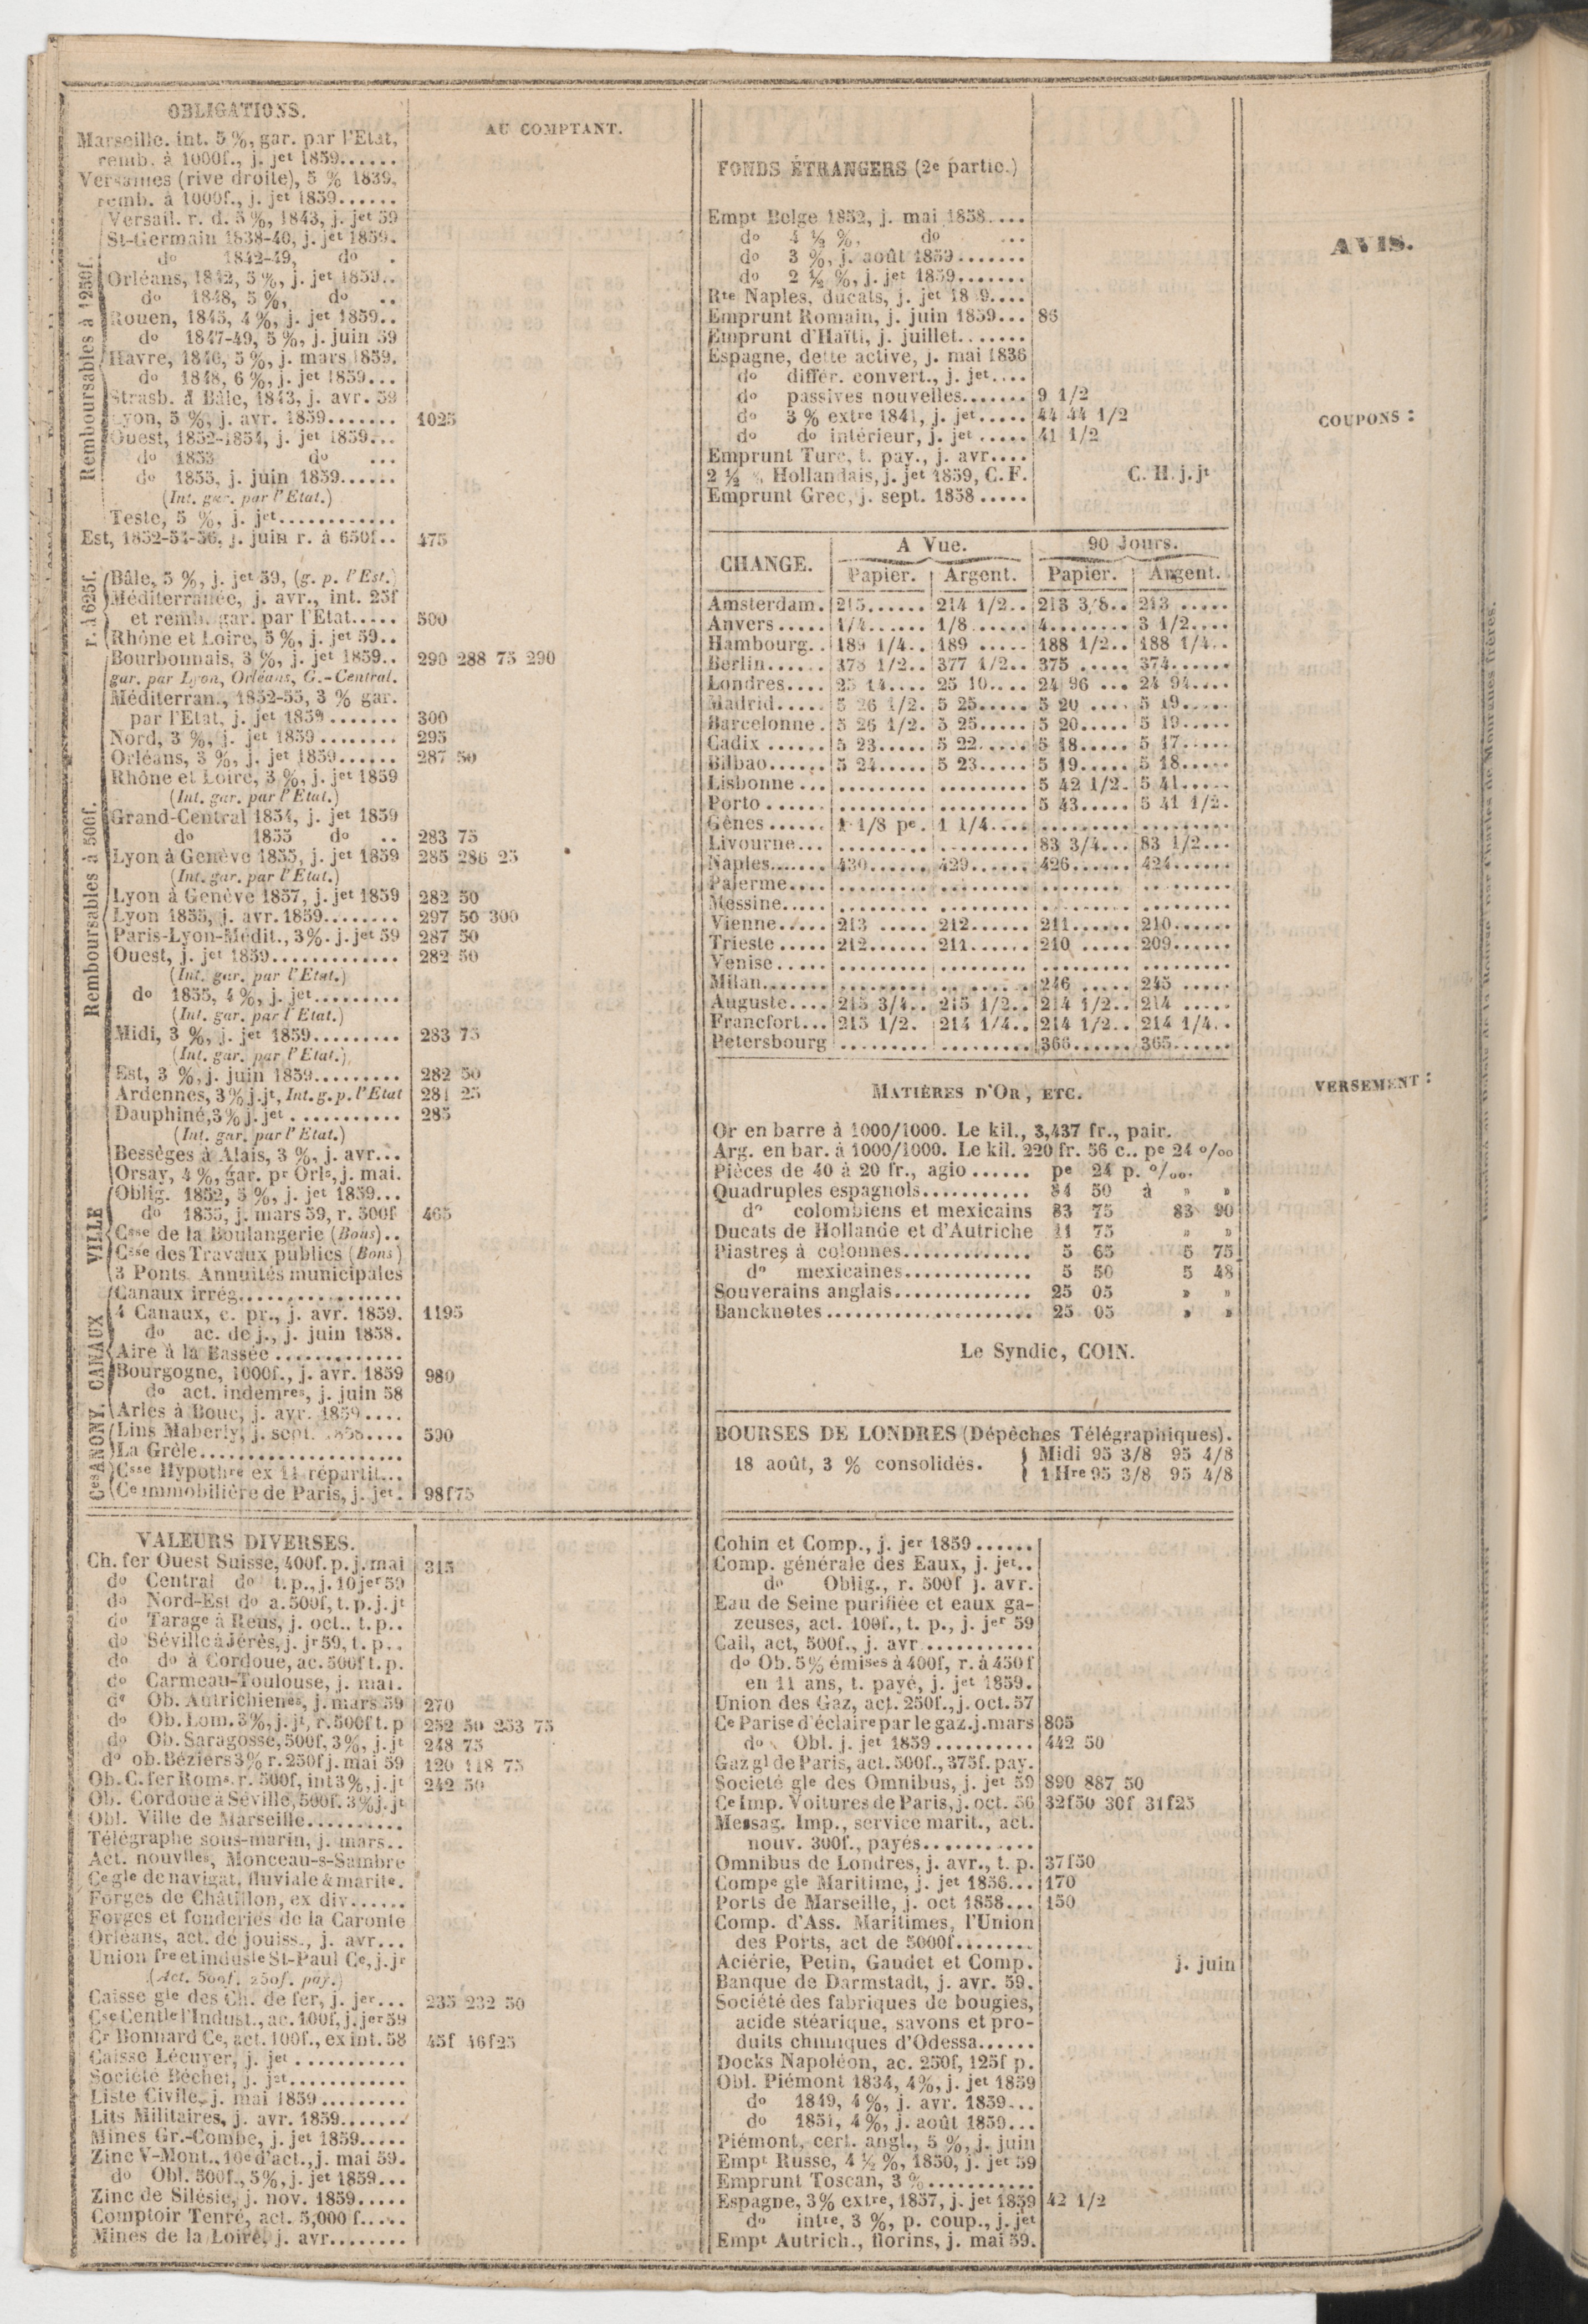 OBLIGATIONS.
AU COMPTANT.
Marseille. int. 5 %, gar. par l'Etat,
remb. à 1000f., j. jet 1859......
Versailles (rive droite), 5 % 1839,
remb. à 1000f., j. jet 1859......
Remboursables à 1250f.
Versail. r. d. 5 %, 1843, j. jet 59
St-Germain 1838-40, j. jet 1859.
do 1842-49, do .
Orléans, 1842, 5 %, j. jet 1859..
do 1848, 5 %, do ..
Rouen, 1845, 4 %, j. jet 1859..
do 1847-49, 5 %, j. juin 59
Havre, 1846, 5 %, j. mars 1859.
do 1848, 6 %, j. jet 1859...
Strasb. à Bâle, 1843, j. avr. 59
Lyon, 5 %, j. avr. 1859....... 1025
Ouest, 1852-1854, j. jet 1859...
do 1853 do ...
do 1855, j. juin 1859......
(Int. gar. par l'Etat.)
Teste, 5 %, j. jet............
Est, 1852-54-56, j. juin r. à 650f.. 475
r. à 625f.
Bâle, 5 %, j. jet 59, (g. p. l'Est.)
Méditerranée, j. avr., int. 25f
et remb. gar. par l'Etat..... 500
Rhône et Loire, 5 %, j. jet 59..
Remboursables à 500f.
Bourbonnais, 3 %, j. jet 1859.. 290 288 75 290
gar. par Lyon, Orléans, G.-Central.
Méditerran., 1852-55, 3 % gar.
par l'Etat, j. jet 1859....... 300
Nord, 3 %, j. jet 1859........ 295
Orléans, 3 %, j. jet 1859...... 287 50
Rhône et Loire, 3 %, j. jet 1859
(Int. gar. par l'Etat.)
Grand-Central 1854, j. jet 1859
do 1855 do .. 283 75
Lyon à Genève 1855, j. jet 1859 285 286 25
(Int. gar. par l'Etat.)
Lyon à Genève 1857, j. jet 1859 282 50
Lyon 1855, j. avr. 1859........ 297 50 300
Paris-Lyon-Médit., 3%. j. jet 59 287 50
Ouest, j. jet 1859............. 282 50
(Int. gar. par l'Etat.)
do 1855, 4 %, j. jet.........
(Int. gar. par l'Etat.)
Midi, 3 %, j. jet 1859......... 283 75
(Int. gar. par l'Etat.)
Est, 3 %, j. juin 1859......... 282 50
Ardennes, 3% j. jt, Int. g. p. l'Etat 281 25
Dauphiné, 3% j. jet ........... 285
(Int. gar. par l'Etat.)
Bessèges à Alais, 3 %, j. avr...
Orsay, 4 %, gar. pr Orls, j. mai.
VILLE
Oblig. 1852, 5 %, j. jet 1859...
do 1855, j. mars 59, r. 500f 465
Csse de la Boulangerie (Bons)..
Csse des Travaux publics (Bons)
3 Ponts. Annuités municipales
CANAUX
Canaux irrég.................
4 Canaux, c. pr., j. avr. 1859. 1195
do ac. de j., j. juin 1858.
Aire à la Bassée .............
Bourgogne, 1000f., j. avr. 1859 980
do act. indemres, j. juin 58
Arles à Bouc, j. avr. 1859....
Ces ANONY.
Lins Maberly, j. sept. 1858.... 590
La Grèle.....................
Csse Hypothre ex 11 répartit...
Ce immobilière de Paris, j. jet. 98f75
VALEURS DIVERSES.
Ch. fer Ouest Suisse, 400f. p. j. mai 315
do Central do t. p., j. 10 jer 59
do Nord-Est do a. 500f, t. p. j. jt
do Tarage à Reus, j. oct.. t. p..
do Séville à Jérès, j. jr 59, t. p..
do do à Cordoue, ac. 500f t. p.
do Carmeau-Toulouse, j. mai.
do Ob. Autrichienes, j. mars 59 270
do Ob. Lom. 3%, j. jt, r. 500f t. p 252 50 253 75
do Ob. Saragosse, 500f, 3%, j. jt 248 75
do ob. Béziers 3% r. 250f j. mai 59 120 118 75
Ob. C. fer Roms. r. 500f, int 3%, j. jt 242 50
Ob. Cordoue à Séville, 500f. 3% j. jt
Obl. Ville de Marseille..........
Télégraphe sous-marin, j. mars..
Act. nouvlles, Monceau-s-Sambre
Ce gle de navigat. fluviale & marite.
Forges de Châtillon, ex div......
Forges et fonderies de la Caronte
Orléans, act. de jouiss., j. avr...
Union fre et induste St-Paul Ce, j. jr
(Act. 500f. 250f. pay.)
Caisse gle des Ch. de fer, j. jer... 235 232 50
Cse Centle l'Indust., ac. 100f, j. jer 59
Cr Bonnard Ce, act. 100f., ex int. 58 45f 46f25
Caisse Lécuyer, j. jet ...........
Société Béchet, j. jet............
Liste Civile, j. mai 1859.........
Lits Militaires, j. avr. 1859.......
Mines Gr.-Combe, j. jet 1859.....
Zinc V-Mont., 10e d'act., j. mai 59.
do Obl. 500f., 5%, j. jet 1859...
Zinc de Silésie, j. nov. 1859.....
Comptoir Tenré, act. 5,000 f.....
Mines de la Loire, j. avr........
FONDS ÉTRANGERS (2e partie.)
Empt Belge 1852, j. mai 1858....
do 4 ½ %, do ...
do 3 %, j. août 1859.......
do 2 ½ %, j. jet 1859.......
Rte Naples, ducats, j. jet 18 9....
Emprunt Romain, j. juin 1859... 86
Emprunt d'Haïti, j. juillet.......
Espagne, dette active, j. mai 1836
do différ. convert., j. jet....
do passives nouvelles....... 9 1/2
do 3 % extre 1841, j. jet..... 44 44 1/2
do do intérieur, j. jet ..... 41 1/2
Emprunt Turc, t. pay., j. avr....
2 ½ % Hollandais, j. jet 1859, C. F. C. H. j. jt
Emprunt Grec, j. sept. 1858.....
CHANGE. A Vue. 90 Jours.
Papier. Argent. Papier. Argent.
Amsterdam. 215...... 214 1/2.. 213 3/8.. 213 .....
Anvers..... 1/4...... 1/8 ...... 4........ 3 1/2....
Hambourg.. 189 1/4.. 189 ..... 188 1/2.. 188 1/4..
Berlin...... 378 1/2.. 377 1/2.. 375 ..... 374......
Londres.... 25 14.... 25 10.... 24 96 ... 24 94....
Madrid..... 5 26 1/2. 5 25..... 5 20 .... 5 19.....
Barcelonne. 5 26 1/2. 5 25..... 5 20..... 5 19.....
Cadix ...... 5 23..... 5 22..... 5 18..... 5 17.....
Bilbao...... 5 24..... 5 23..... 5 19..... 5 18.....
Lisbonne... ......... ......... 5 42 1/2. 5 41.....
Porto...... ......... ......... 5 43..... 5 41 1/2.
Gênes...... 1 1/8 pe. 1 1/4.... ......... .........
Livourne... ......... ......... 83 3/4... 83 1/2...
Naples...... 430...... 429...... 426...... 424......
Palerme.... ......... ......... ......... .........
Messine..... ......... ......... ......... .........
Vienne..... 213 ..... 212...... 211...... 210......
Trieste..... 212...... 211...... 210 ..... 209......
Venise..... ......... ......... ......... .........
Milan....... ......... ......... 246 ..... 245 .....
Auguste.... 215 3/4.. 215 1/2.. 214 1/2.. 214 .....
Francfort... 215 1/2. 214 1/4.. 214 1/2.. 214 1/4..
Petersbourg ......... ......... 366...... 365......
MATIÈRES D'OR, ETC.
Or en barre à 1000/1000. Le kil., 3,437 fr., pair.
Arg. en bar. à 1000/1000. Le kil. 220 fr. 56 c.. pe 24 °/oo
Pièces de 40 à 20 fr., agio...... pe 24 p. °/oo.
Quadruples espagnols........... 84 50 à » »
do colombiens et mexicains 83 75 83 90
Ducats de Hollande et d'Autriche 11 75 » »
Piastres à colonnes............. 5 65 5 75
do mexicaines............. 5 50 5 48
Souverains anglais.............. 25 05 » »
Bancknotes..................... 25 05 » »
Le Syndic, COIN.
BOURSES DE LONDRES (Dépêches Télégraphiques).
18 août, 3 % consolidés. Midi 95 3/8 95 4/8
1 Hre 95 3/8 95 4/8
Cohin et Comp., j. jer 1859......
Comp. générale des Eaux, j. jet..
do Oblig., r. 500f j. avr.
Eau de Seine purifiée et eaux ga-
zeuses, act. 100f., t. p., j. jer 59
Cail, act, 500f., j. avr ...........
do Ob. 5% émises à 400f, r. à 450f
en 11 ans, t. payé, j. jet 1859.
Union des Gaz, act. 250f., j. oct. 57
Ce Parise d'éclaire par le gaz. j. mars 805
do Obl. j. jet 1859.......... 442 50
Gaz gl de Paris, act. 500f., 375f. pay.
Societé gle des Omnibus, j. jet 59 890 887 50
Ce Imp. Voitures de Paris, j. oct. 56 32f50 30f 31f25
Messag. Imp., service marit., act.
nouv. 300f., payés...........
Omnibus de Londres, j. avr., t. p. 37f50
Compe gle Maritime, j. jet 1856... 170
Ports de Marseille, j. oct 1858... 150
Comp. d'Ass. Maritimes, l'Union
des Ports, act de 5000f........
Aciérie, Petin, Gaudet et Comp. j. juin
Banque de Darmstadt, j. avr. 59.
Société des fabriques de bougies,
acide stéarique, savons et pro-
duits chimiques d'Odessa......
Docks Napoléon, ac. 250f, 125f p.
Obl. Piémont 1834, 4%, j. jet 1859
do 1849, 4 %, j. avr. 1859...
do 1851, 4 %, j. août 1859...
Piémont, cert. angl., 5 %, j. juin
Empt Russe, 4 ½ %, 1850, j. jet 59
Emprunt Toscan, 3 %...........
Espagne, 3% extre, 1857, j. jet 1859 42 1/2
do intre, 3 %, p. coup., j. jet
Empt Autrich., florins, j. mai 59.
AVIS.
COUPONS :
VERSEMENT :